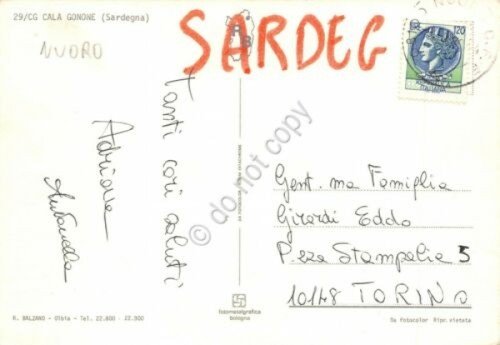 29/CG CALA GONONE (Sardegna)
NUORO
SARDEG
Tanti cari saluti
Adriana
Antonella
Gent. ma Famiglia
Girardi Eddo
P.zza Stampalia 5
10148 TORINO
120
ITALIANA
RB
do not copy
fotometalgrafica
bologna
R. BALZANO - Olbia - Tel. 22.800 - 22.900
Da fotocolor Ripr. vietata